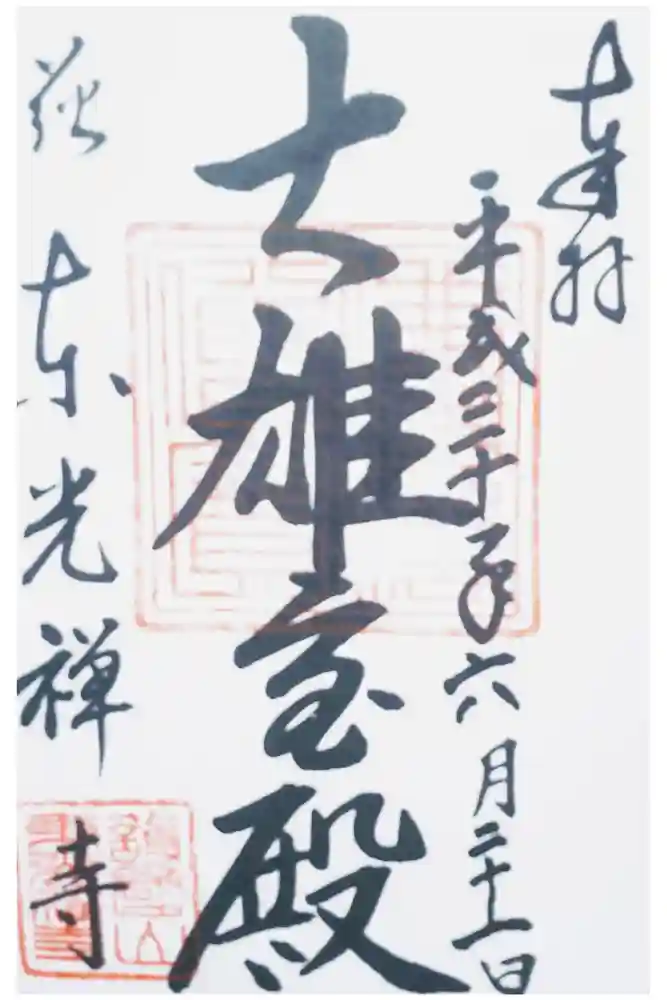 奉拝
平成三十年六月二十一日
大雄宝殿
萩
東光禅寺